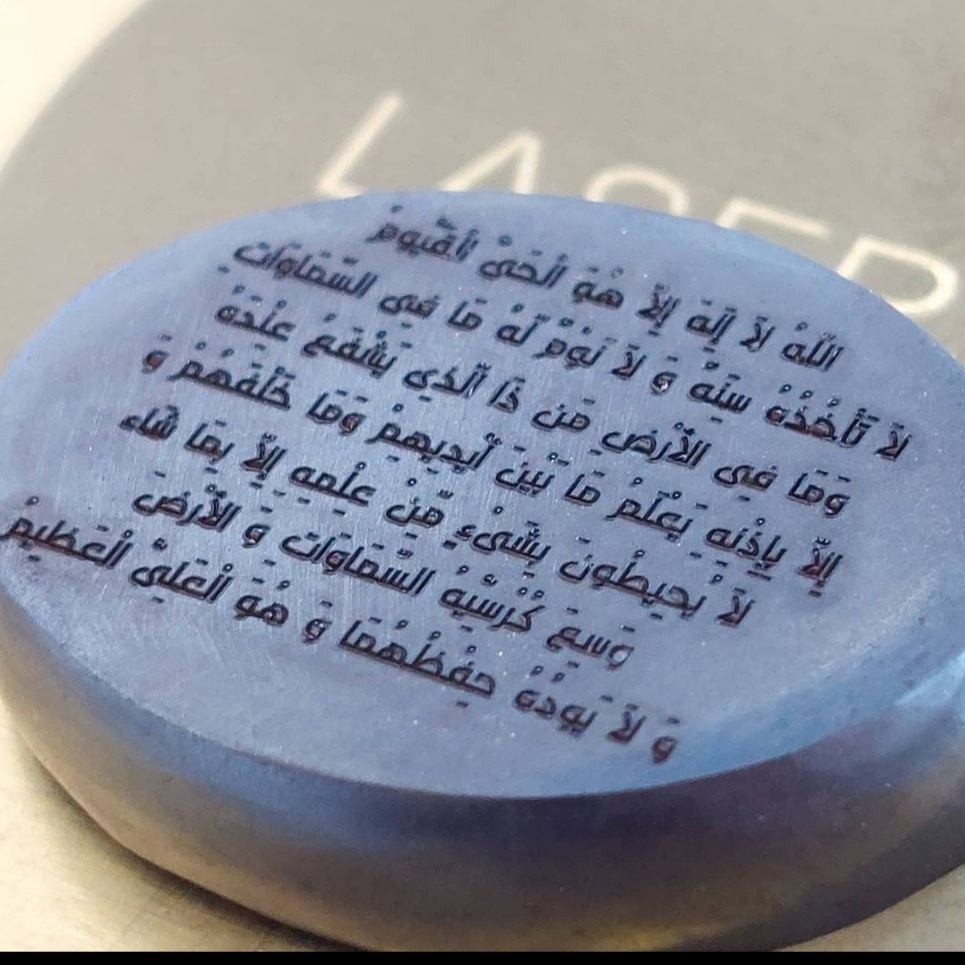 LASER
اللّهُ لاَ إِلَهَ إِلاَّ هُوَ الْحَيُّ الْقَيُّومُ
لاَ تَأْخُذُهُ سِنَةٌ وَ لاَ نَوْمٌ لَّهُ مَا فِي السَّمَاوَاتِ
وَمَا فِي الأَرْضِ مَن ذَا الَّذِي يَشْفَعُ عِنْدَهُ
إِلاَّ بِإِذْنِهِ يَعْلَمُ مَا بَيْنَ أَيْدِيهِمْ وَمَا خَلْفَهُمْ وَ
لاَ يُحِيطُونَ بِشَيْءٍ مِّنْ عِلْمِهِ إِلاَّ بِمَا شَاء
وَسِعَ كُرْسِيُّهُ السَّمَاوَاتِ وَ الأَرْضَ
وَ لاَ يَؤُدُهُ حِفْظُهُمَا وَ هُوَ الْعَلِيُّ الْعَظِيمُ